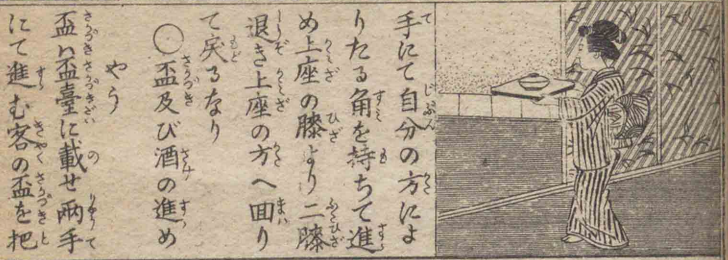 手にて自分の方によ
りたる角を持ちて進
め上座の膝より二膝
退き上座の方へ回り
て戻るなり
◯盃及び酒の進め
やう
盃ハ盃臺に載せ兩手
にて進む客の盃を把